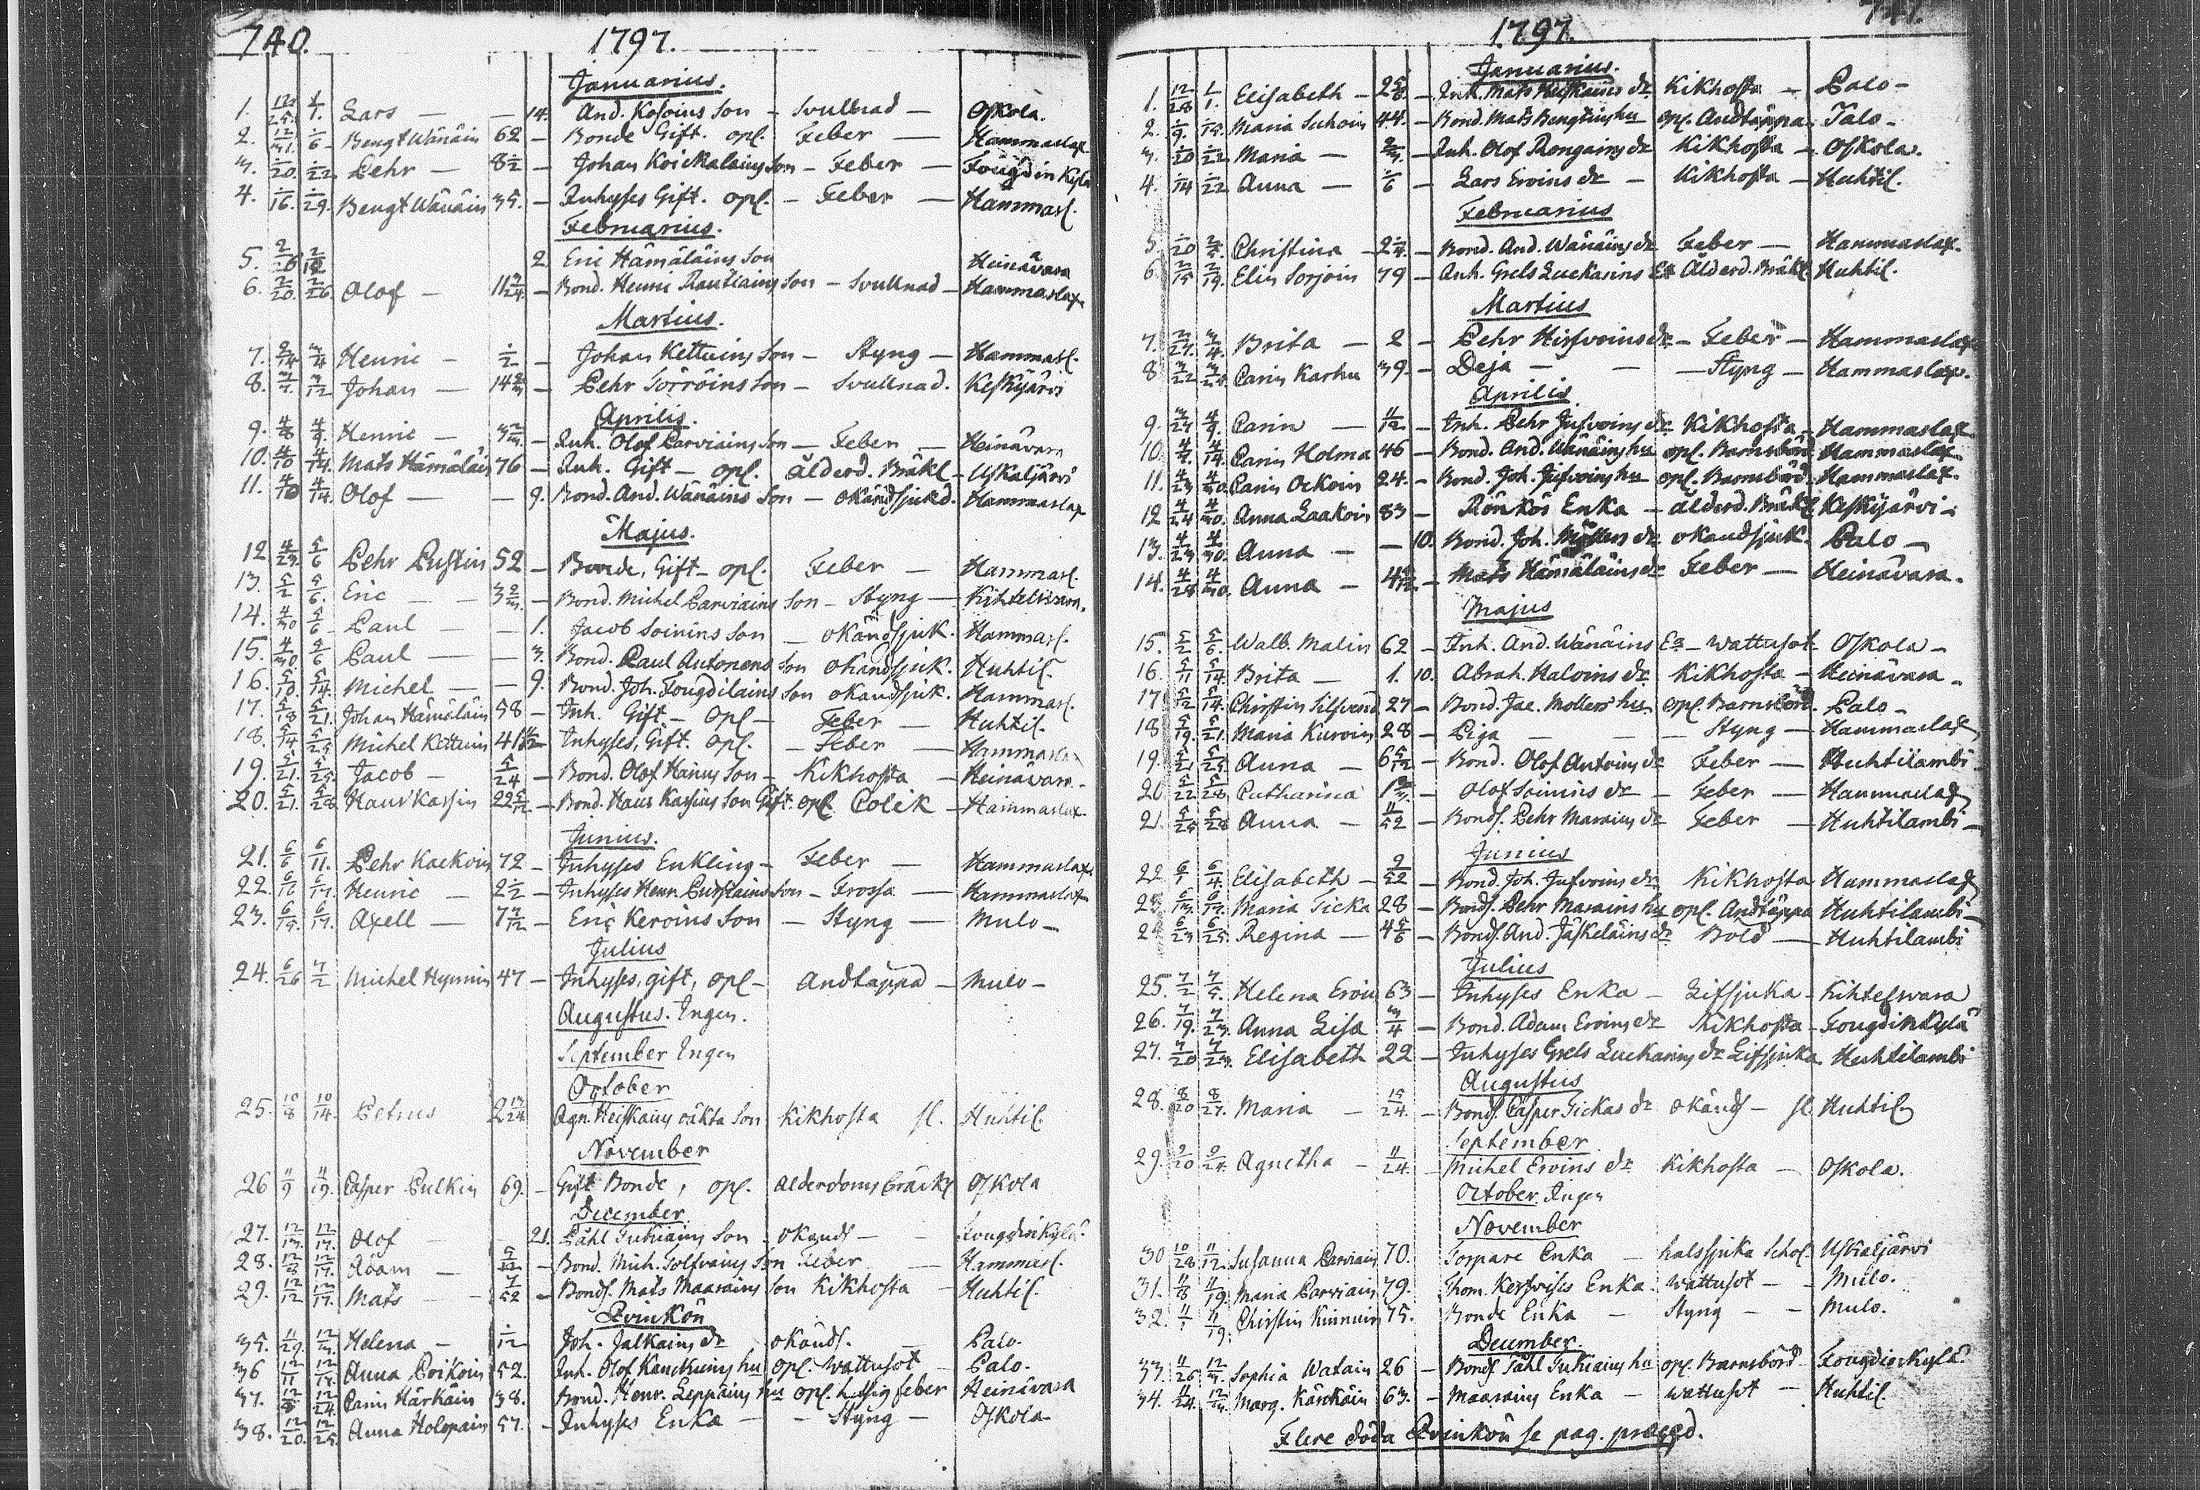 740. 1797.
Januarius.
1. 12/25. 1/1. Lars — — 14. And. Kosoins Son — Svullnad — Oskola.
2. 12/31. 1/6 Bengt Wänäin 62 — Bonde Gift. opl. Feber — Hammaslax
3. 1/20. 1/22 Pehr — 8 1/2 — Johan Koickalains Son — Feber — Fougdin Kylä
4. 1/16. 1/29. Bengt Wänäin 35. — Inhyses Gift. opl. — Feber — Hammasl.
Februarius.
5. 2 Eric Hämäläins Son Heinävara
6. 2/20. 2/26 Olof — — Bond. Henric Rautiains Son — Svullnad — Hammaslax
Martius.
7. 2/14 3/4 Henric — 1/2 — Johan Kettuins Son — Styng — Hammasl.
8. 3/7. 3/12 Johan — 14 2/3 — Pehr Törröins Son — Svullnad. Keskijärvi
Aprilis.
9. 4/8 4/9. Henric — 3 2/3. — Inh. Olof Parviains Son — Feber — Heinävara
10. 4/10 4/14. Mats Hämäläin 76 — Inh. Gift — opl. ålderd. Bräkl — Uskaljärvi
11. 4/10 4/14. Olof — — 9. Bond. And. Wänäins Son — okändsjukd. Hammaslax
Majus.
12 4/29. 5/6 Pehr Pustin 52 — Bonde, Gift — opl. Feber — Hammasl.
13. 5/2 5/6. Eric — — 3 2/3. — Bond. Michel Parviains Son — Styng — Kihteliswara.
14. 4/30 5/6 Paul — — 1. Jacob Soinins Son — okändsjuk. Hammasl.
15. 4/30. 5/6 Paul — — 3. Bond. Paul Antonens Son okändsjuk. Huhtil.
16. 5/10. 5/14. Michel — — 9. Bond. Joh. Fougdilains Son okändsjuk. Hammasl.
17. 5/18 5/21. Johan Hämäläin 58 — Inh. Gift — Opl — Feber — Huhtil.
18. 5/14 5/25 Michel Kettuin 41 — Inhyses, Gift. Opl. — Feber — Hammasla
19. 5/21. 5/25. Jacob — 5/24 — Bond. Olof Hainus Son — Kikhosta — Heinävara
20. 5/21. 5/28 Hans Kassin 22 5/12 — Bond. Hans Kassins Son Gift. opl. Colik — Hammaslax
Junius.
21. 6/6 6/11. Pehr Kackoin 72 — Inhyses Enkling — Feber — Hammaslax
22. 6/16 6/17. Henric — 2 1/2 — Inhyses Henr. Purstains Son — Frossa — Hammaslax
23. 6/15. 6/17. Axell — 7 7/12 — Eric Keroins Son — Styng — Mulo —
Julius
24. 6/26 7/2 Michel Hynnin 47 — Inhyses, gift, opl — Andtäppa — Mulo —
Augustus. Ingen.
September Ingen
October
25. 10/8 10/14. Petrus 2 13/24 Agn. Heiskains oäkta Son Kikhosta sl. Huhtil.
November
26 11/9 11/19. Casper Pulkin 69. — Gift Bonde, opl. Alderdoms bräckl Oskola
December
27. 12/13. 12/17. Olof — 21. Påhl Turkiains Son okänds — Fougdin Kylä.
28. 12/8 12/17. Adam — 5/12 — Bond. Mich. Tolfvains Son Feber Hammasl.
29. 12/12 12/17. Mats — — 7/52 — Bonds. Mats Maarains Son Kikhosta — Huhtil.
Qvinkön
35. 11/29. 12/3. Helena — 1/12 — Joh. Jalkains dr okänds. — Palo.
36 12/11 12/17. Anna Poikoin 52. — Inh. Olof Kauckuins hu opl. Wattusot Palo.
37. 12/8 12/24. Carin Härkäin 38. — Bond. Henr. Leppäins hu opl. hetsig feber Heinävara
38. 12/20. 12/25. Anna Holopain 57. — Inhyses Enka — — Styng — Oskola
1797. 741.
Januarius.
1. 12/28 1/1. Elisabeth — 2 5/6. — Inh. Mats Heiskains dr Kikhosta — Palo —
2. 1/9. 1/15. Maria Suhoin 44. — Bond. Mats Bengtins hu opl. Andtäppa. Palo —
3. 1/20 1/22 Maria — 2/3. — Inh. Olof Rongains dr Kikhosta — Oskola.
4. 1/14 1/22 Anna — 1/6 — Lars Eroins dr — Kikhosta — Huhtil.
Februarius
5. 1/20 2/5. Christina — 2 1/4. — Bond. And. Wänäins dr Feber — Hammaslax.
6. 2/15 2/19. Elin Sorjoin 79 — Inh. Grels Luckarins Ea Ålderd. Bräkl. Huhtil.
Martius
7. 2/27. 3/4. Brita — 2 — Pehr Hirfvoins dr — Feber — Hammaslax
8 3/22 3/25. Carin Karhu 39. — Deja — — Styng — Hammaslax.
Aprilis
9. 3/27 4/9. Carin — 11/12 — Inh. Pehr Jufvoins dr Kikhosta — Hammaslax
10. 4/7. 4/14. Carin Holma 46 — Bond. And. Wänäins hu opl. Barnsbörd Hammaslax
11. 4/23 4/30. Carin Ockoin 24. — Bond. Joh. Jufvoins hu opl. Barnsbörd. Hammaslax.
12 4/24 4/30. Anna Laakoin 83 — Rönkös Enka — ålderd. Bräkl Keskijärvi —
13. 4/23 4/30. Anna — — 10. Bond. Joh. Möllers dr okändsjuk. Palo —
14. 4/28 4/30. Anna — 4 — Mats Hämäläins dr Feber — Heinävara.
Majus
15. 5/2 5/6. Walb. Malin 62 — Inh. And. Wänäins Ea — wattusot — Oskola —
16. 5/11 5/14. Brita — 1. 10. Abrah. Haloins dr Kikhosta — Heinävara —
17. 5/12 5/14. Christin Silfvend 27 — Bond. Jac. Mollers hu opl. Barnsbörd. Palo —
18. 5/19. 5/21. Maria Kuroin 28 — Piga — — Styng — Hammaslax
19. 5/21 5/25 Anna — 6 5/12 — Bond. Olof Antoins dr Feber — Huhtilambi
20. 5/22 5/28 Catharina 1 2/3. — Olof Soinins dr — Feber — Hammaslax
21. 5/25 5/28 Anna — 11/52 — Bonds. Pehr Marains dr Feber — Huhtilambi —
Junius
22. 6/1 6/4 Elisabeth — 9/22 — Bond. Joh. Jufvoins dr Kikhosta Hammaslax
23. 6/13. 6/17. Maria Ticka 28 — Bonds. Pehr Marains hu opl. Andtäppa Huhtilambi —
2 6/23 6/25. Regina — 4 5/6 — Bonds. And. Jäskeläins dr Böld — Huhtilambi
Julius
25. 7/2 7/9. Helena Eroin 63 — Inhyses Enka — Lifsjuka — Kihtelswara
26. 7/19. 7/23. Anna Lisa 3/4 — Bond. Adam Eroins dr Kikhosta — Fougdin Kylä
27. 7/20 7/23. Elisabeth 22 — Inhyses Grels Luckarins dr Lifsjuka Huhtilambi
Augustus
28. 8/20 8/27. Maria — 15/24. — Bonds. Casper Tickas dr okänds — sl. Huhtil.
September
29. 9/20 9/24. Agnetha — 11/24. — Michel Eroins dr Kikhosta — Oskola.
October Ingen
November
30 10/28 11/12. Susanna Parviain 70. Torpare Enka — halssjuka Schol. Uskaljärvi
31. 11/8 11/19. Maria Parviain 79. Thom. Kerfvises Enka. Wattusot — Mulo.
32. 11/1 11/19. Christin Kinnuin 75. Bonde Enka — Styng — — Mulo.
December.
33. 11/26 12/3. Sophia Watain 26 — Bonds Påhl Turkiains hu opl. Barnsbörd Fougdin Kylä
34. 11/24. 12/3. Marg. Kärckäin 63. — Maarains Enka — Wattusot — Huhtil.
Flere döda Qvinkön se pag. præced.